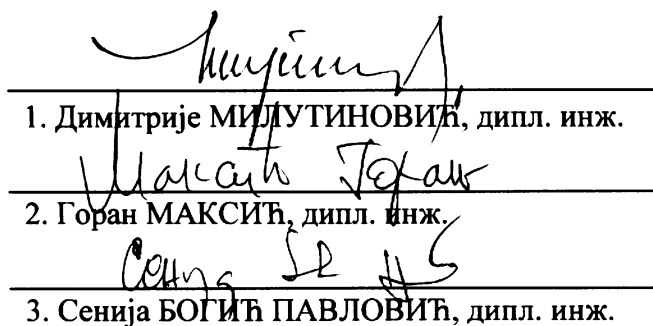 1. Димитрије МИЛУТИНОВИЋ, дипл. инж.
Максић Горан
2. Горан МАКСИЋ, дипл. инж.
3. Сенија БОГИЋ ПАВЛОВИЋ, дипл. инж.